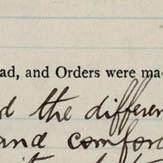 ad, and Orders were ma
d the differen
and comfor